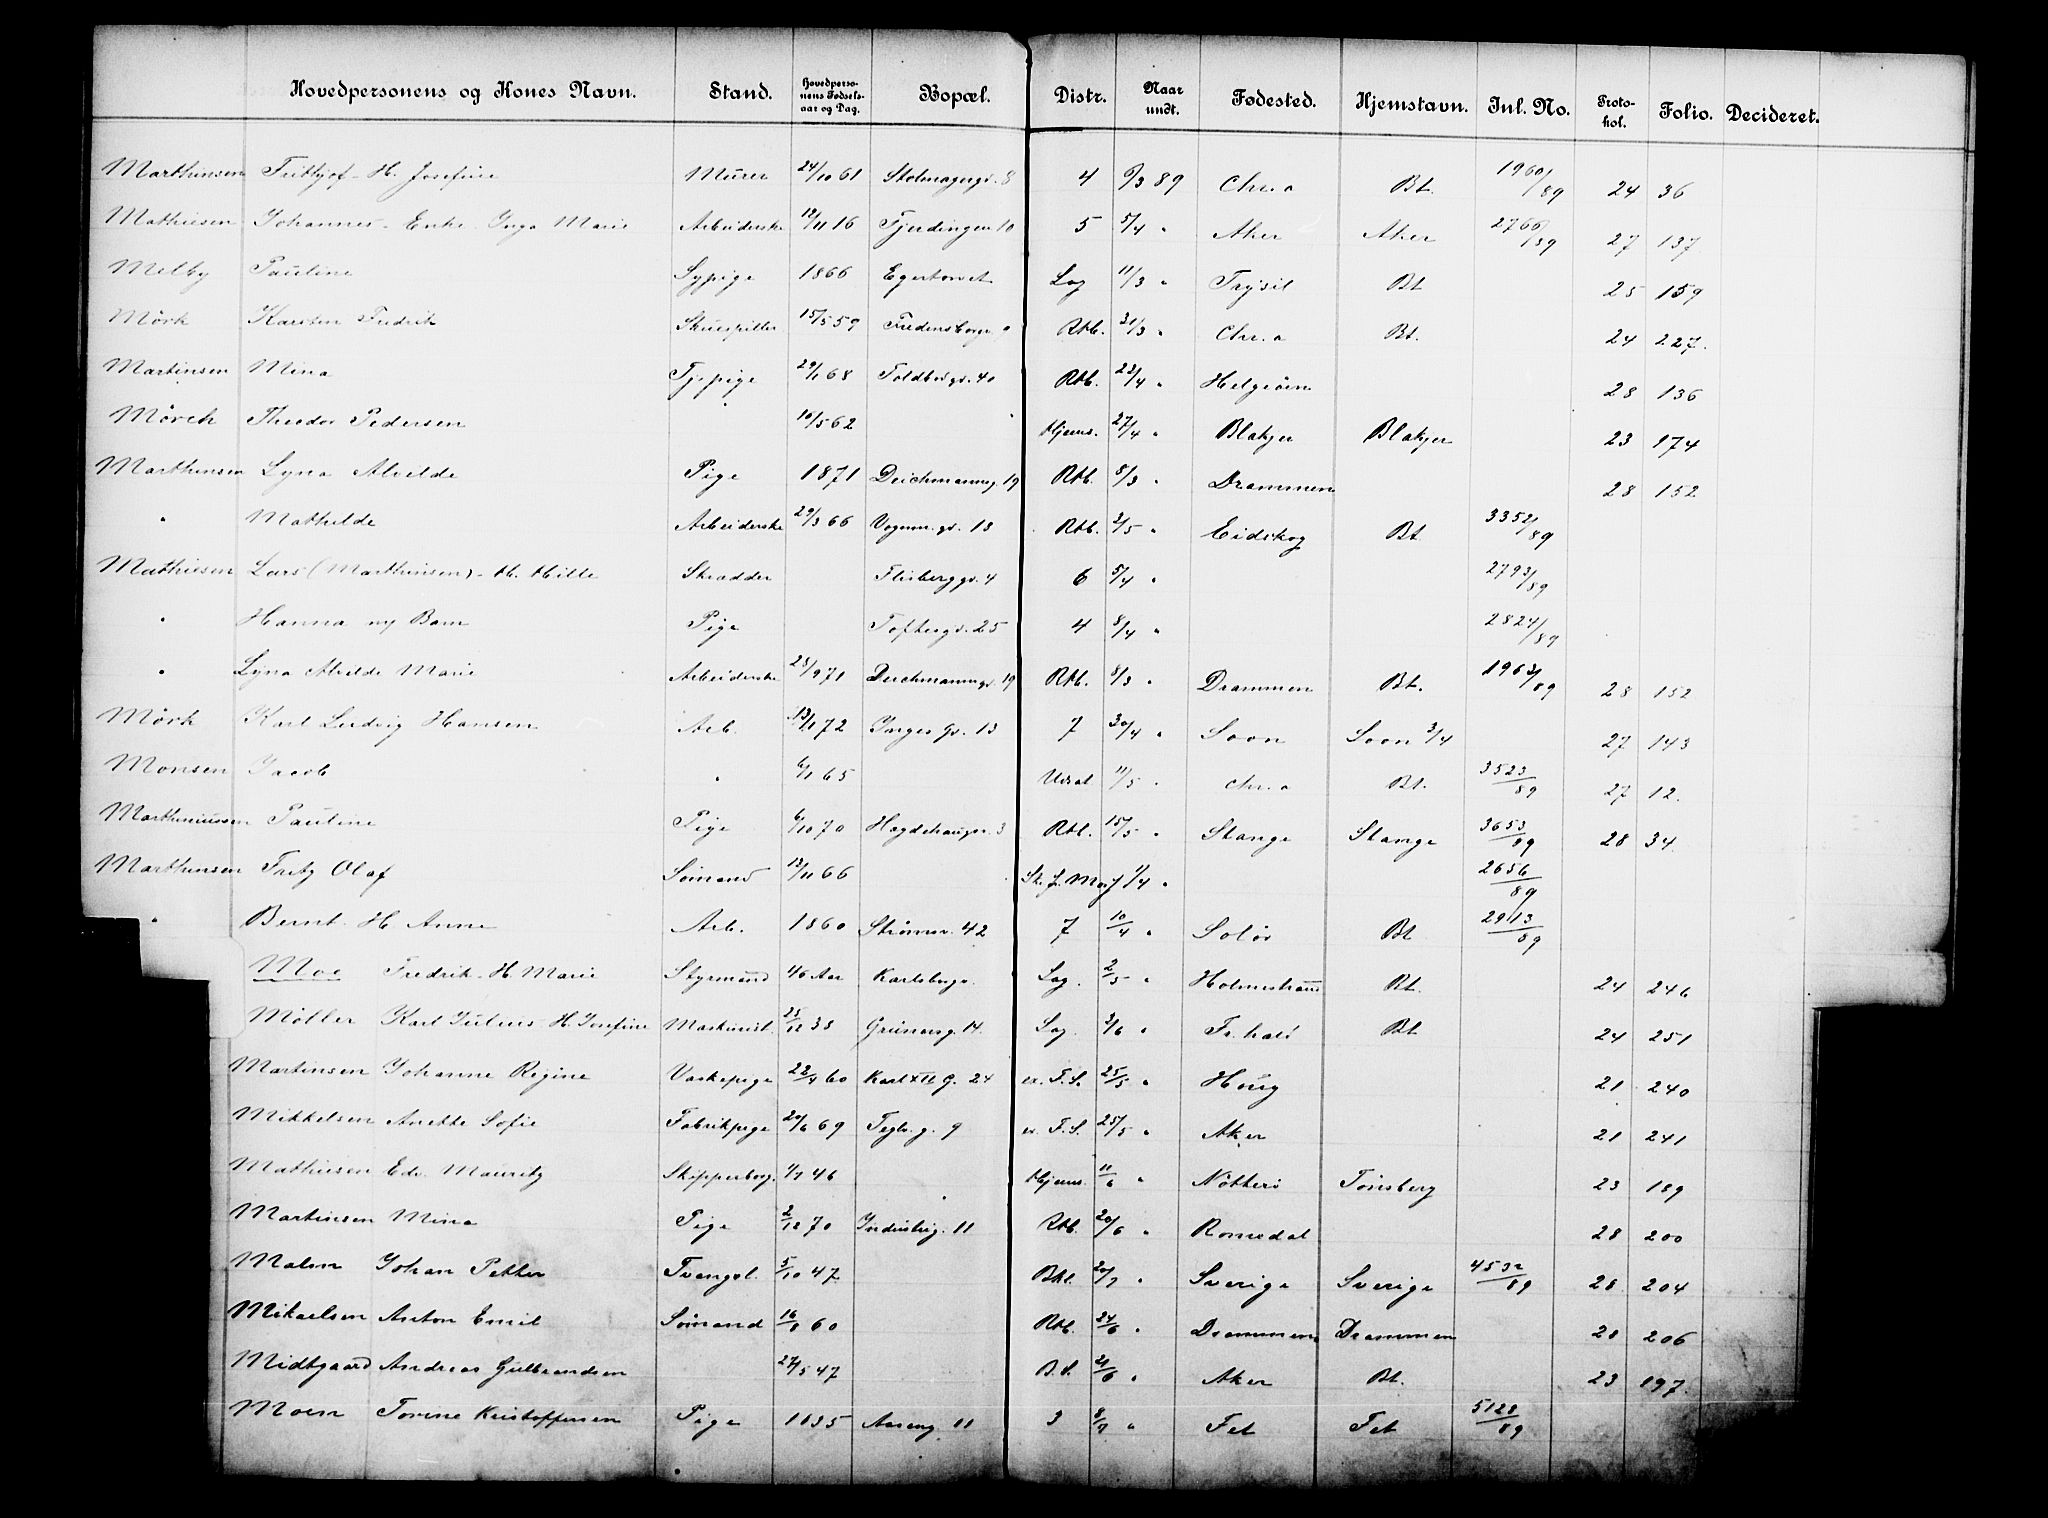 Hovedpersonens og Kones Navn. Stand. Hovedpersonens Fødselsaar og Dag. Bopæl. Distr. Naar undt. Fødested. Hjemstavn. Inl. No. Protokol. Folio. Decideret.
Marthinsen Frithjof - H. Josefine Murer 24/10 61 Stolmagergd. 8 4 6/3 89 Chr.a Bt. 1960/89 24 36
Mathiesen Johannes - Enke Inga Marie Arbeiderske 12/11 16 Fjerdingen 10 5 5/4 " Aker Aker 2766/89 27 137
Melby Pauline Sypige 1866 Egertorvet Log 11/3 " Trysil Bt 25 159
Mörk Karsten Fredrik Skuespiller 15/5 59 Fredensborgv. 9 Rtb. 21/3 " Chr.a Bt. 24 227.
Martinsen Mina Tjpige 29/1 68 Toldbodgd. 40 Rtb. 23/4 " Helgeöen 28 136
Mörch Theodor Pedersen 16/5 62 " Hjems. 27/4 " Blakjer Blakjer 23 174
Marthinsen Lyna Alvilde Pige 1871 Deichmannsg. 19 Rtb. 8/3 " Drammen 28 152
" Mathilde Arbeiderske 29/3 66 Vognm.gd. 18 Rtb. 2/5 " Eidskog Bt 3352/89
Mathiesen Lars (Marthinsen) - H. Hille Skrædder Flisberggd. 4 6 5/4 " 2793/89
" Hanna og Barn Pige Toftesgd. 25 4 8/4 " 2824/89
" Lyna Alvilde Marie Arbeiderske 28/9 71 Deichmannsgd. 19 Rtb. 8/3 " Drammen Bt. 1963/89 28 152
Mörk Karl Ludvig Hansen Arb. 13/1 72 Inges Gd. 13 7 30/4 " Soon Soon 3/4 27 143
Monsen Jacob " 6/1 65 Udsal. 11/5 " Chr.a Bt. 3523/89 27 12.
Marthiniussen Pauline Pige 6/10 70 Hegdehaugsv. 3 Rtb. 15/5 " Stange Stange 3653/89 28 34
Marthinsen Fritz Olaf Sömand 13/11 66 1/4 " 2656/89
" Bernt. H. Anne Arb. 1860 Strömsv. 42 7 10/4 " Solör Bt 2913/89
Moe Fredrik - H. Marie Styrmand 46 Aar Karlsborgv. Log. 2/5 " Holmestrand Bt. 24 246
Möller Karl Julius - H. Josefine Maskinist. 25/12 38 Grünersg. 14. Log. 3/6 " Fr.hald Bt 24 251
Martinsen Johanne Regine Vaskepige 22/4 60 Karl XII G. 24 ex. T.S. 25/5 " Houg 21 240
Mikkelsen Anette Sofie Fabrikpige 20/6 69 Teglv.g. 9 ex. T.S. 25/5 " Aker 21 241
Mathiesen Edv. Mauritz Skipperborg. 1/7 46 " Hjems. 11/6 " Nötterö Tönsberg 23 189
Martinsen Mina Pige 2/12 70 Inderslvg. 11 Rtb. 20/6 " Romedal 28 200
Malm Johan Petter Tvangsl. 5/10 47 Rtb. 20/7 " Sverige Sverige 4532/89 28 204
Mikaelsen Anton Emil Sömand 16/8 60 Rtb. 24/6 " Drammen Drammen 28 206
Midtgaard Andreas Gulbrandsen 27/5 47 B.S. 21/6 " Aker Bt. 23 197.
Moen Torine Kristoffersen Pige 1835 Aaseng. 11 3 8/7 " Fet Fet 5128/89